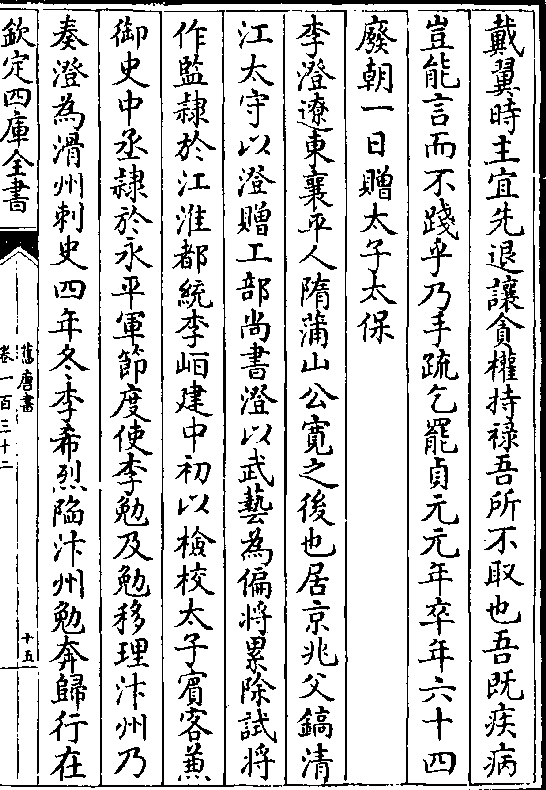 戴翼時主宜先退讓貪權持祿吾所不取也吾既疾病
豈能言而不踐乎乃手疏乞罷貞元元年卒年六十四
廢朝一日贈太子太保
李澄遼東襄平人隋蒲山公寬之後也居京兆父鎬清
江太守以澄贈工部尚書澄以武藝為偏將累除試將
作監隷於江淮都統李峘建中初以檢校太子賓客兼
御史中丞隷於永平軍節度使李勉及勉移理汴州乃
奏澄為滑州刺史四年冬李希烈陷汴州勉奔歸行在
欽定四庫全書
舊唐書
卷一百三十二
十五